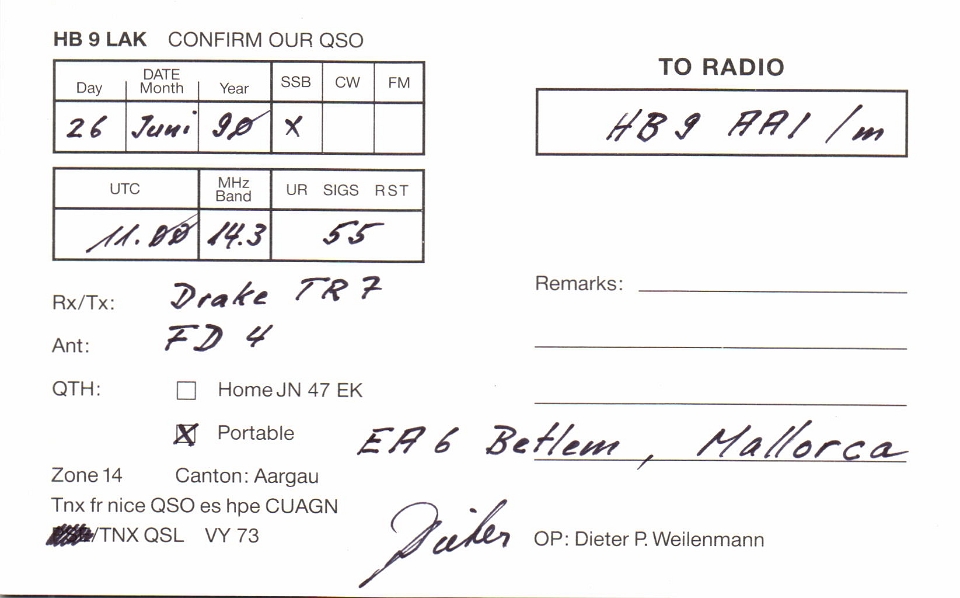 HB 9 LAK CONFIRM OUR QSO
TO RADIO
DATE
Day Month Year SSB CW FM
26 Juni 90 X
HB9 AA1 /m
UTC MHz Band UR SIGS RST
11.00 14.3 55
Rx/Tx: Drake TR7
Ant: FD 4
Remarks:
QTH: Home JN 47 EK
X Portable EA6 Betlem, Mallorca
Zone 14 Canton: Aargau
Tnx fr nice QSO es hpe CUAGN
/TNX QSL VY 73 Dieter OP: Dieter P. Weilenmann